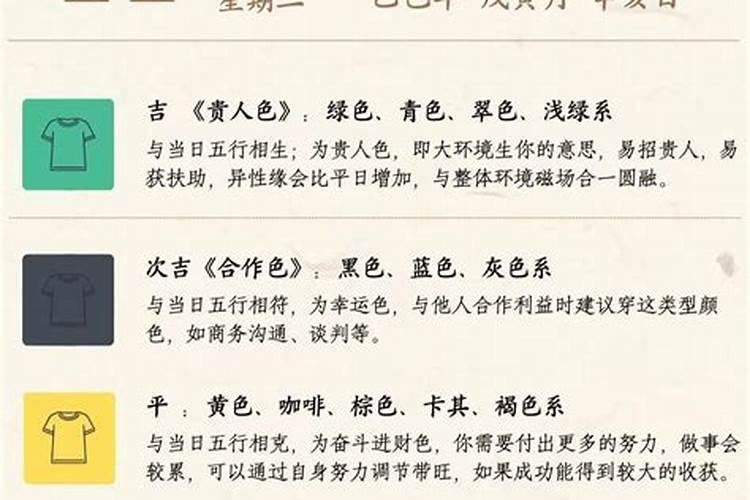 吉 《贵人色》：绿色、青色、翠色、浅绿系
与当日五行相生；为贵人色，即大环境生你的意思，易招贵人，易
获扶助，异性缘会比平日增加，与整体环境磁场合一圆融。
次吉《合作色》：黑色、蓝色、灰色系
与当日五行相符，为幸运色，与他人合作利益时建议穿这类型颜
色，如商务沟通、谈判等。
平 ：黄色、咖啡、棕色、卡其、褐色系
与当日五行相克，为奋斗进财色，你需要付出更多的努力，做事会
较累，可以通过自身努力调节带旺，如果成功能得到较大的收获。